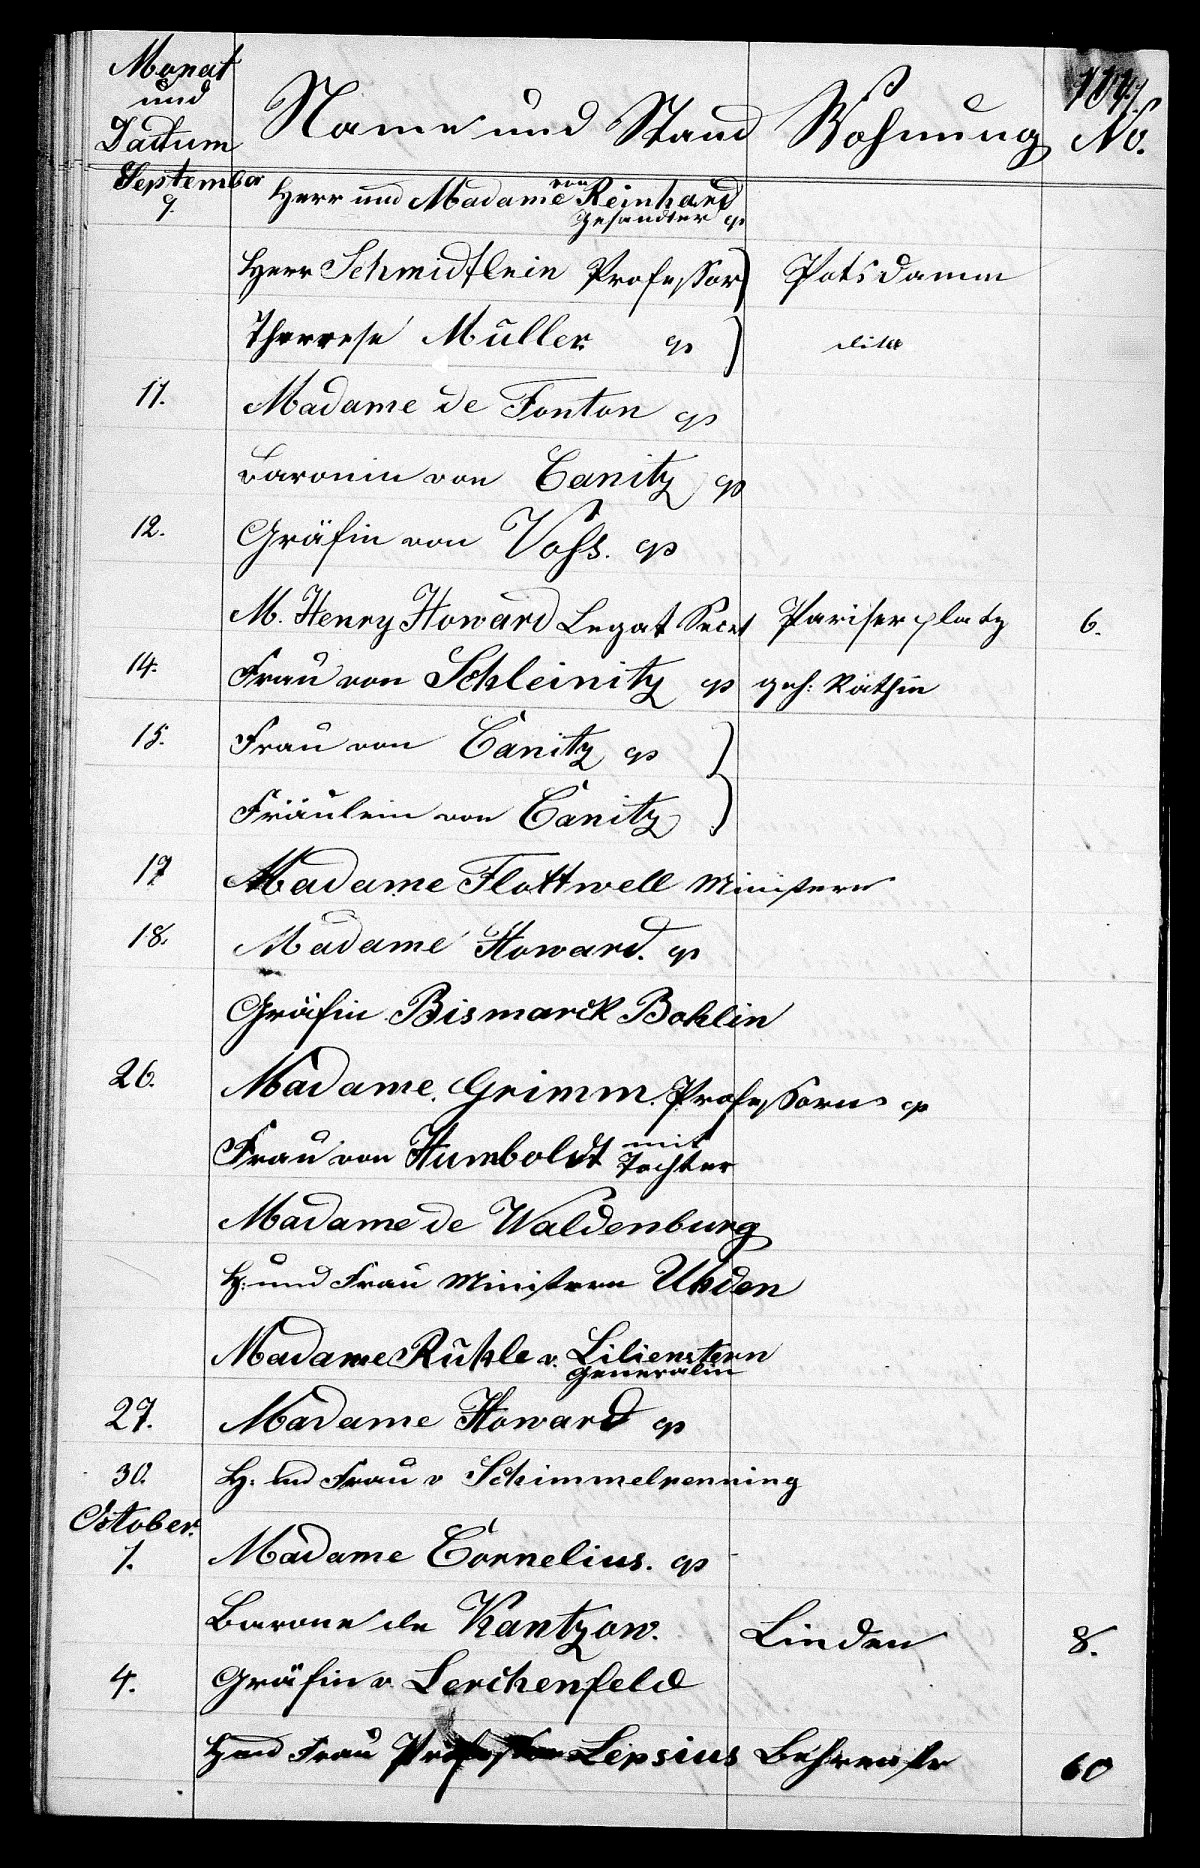 Monat und Dadtum Name und Stand Wohnung No.
September 9. Herr und Madame von Reinhard
Gesandter gp
Herr Schmidtlein Professor ) Potsdamm
Therrese Müller gp ) dito
11. Madame de Fonton gp
Baronin von Canitz gp
12. Gräfin von Voß. gp
M. Henry Howard Legat Secret Pariserplatz 6.
14. Frau von Schleinitz gp geh: Räthin
15. Frau von Canitz gp }
Fräulein von Canitz }
17 Madame Flottwell Ministern
18. Madame Howard. gp
Gräfin Bismarck Bohlin
26. Madame. Grimm. Professorin gp
Frau von Humboldt mit Tochter
Madame de Waldenburg
H: und Frau Ministern Uhden
Madame Rühle v. Lilienstern
Generalin
27. Madame Howard gp
30. H. und Frau v Schimmelpenning
October.
1. Madame Cornelius. gp
Barone de Kantzow. Linden 8.
4. Gräfin v. Lerchenfeld
H und Frau Professor Lepsius Behrenstr 60